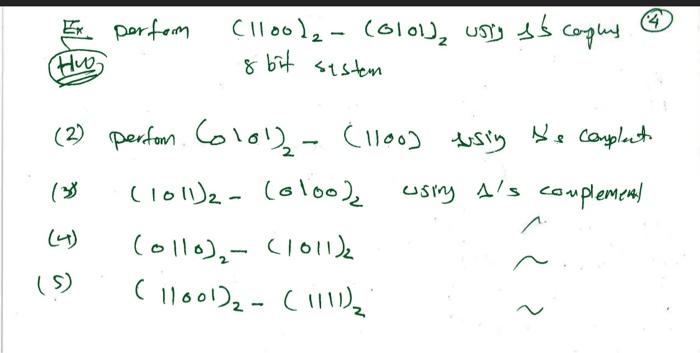 Ex perform (1100)₂ - (0101)₂ using 1's complmt 4
H.W 8 bit system
(2) perform (0101)₂ - (1100) using 1's complmt
(3) (1011)₂ - (0100)₂ using 1's complement
(4) (0110)₂ - (1011)₂ ~
(5) (11001)₂ - (1111)₂ ~